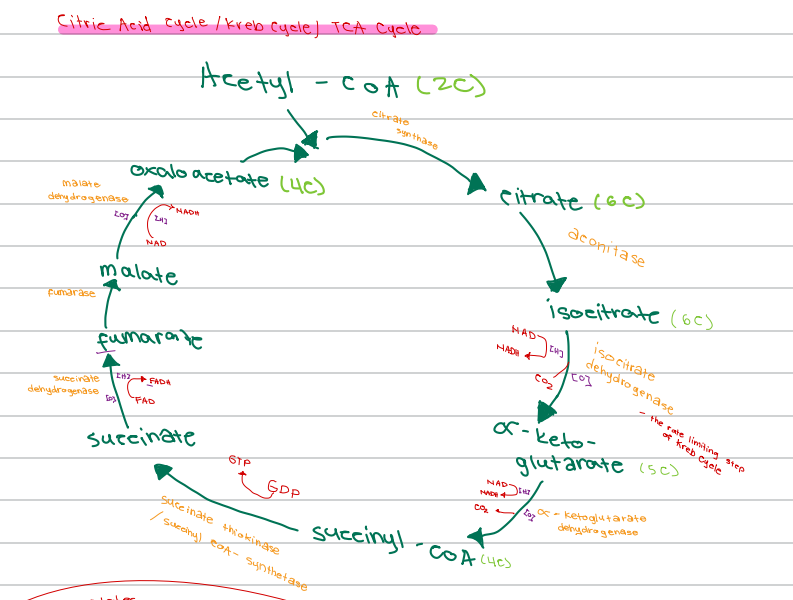 Citric Acid Cycle / Kreb Cycle / TCA Cycle
Acetyl - CoA (2C)
citrate
synthase
oxaloacetate (4C)
citrate (6C)
malate
dehydrogenase
[O]
[H]
NADH
NAD
aconitase
malate
fumarase
isocitrate (6C)
fumarate
NAD
NADH
[H]
CO2
[O]
isocitrate
dehydrogenase
- the rate limiting step
of Kreb Cycle
succinate
dehydrogenase
[H]
FADH
[O]
FAD
succinate
α-keto-
glutarate (5C)
GTP
GDP
NAD
NADH
[H]
CO2
[O]
α-ketoglutarate
dehydrogenase
succinate thiokinase
/ succinyl CoA - synthetase
succinyl - CoA (4C)